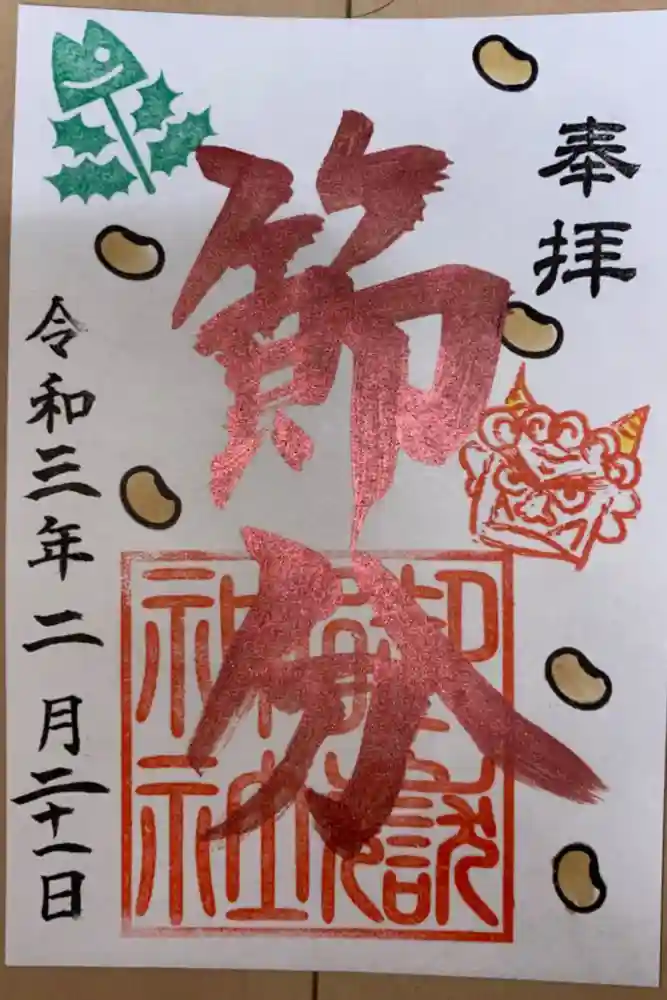 奉拝
節分
神社
令和三年二月二十一日